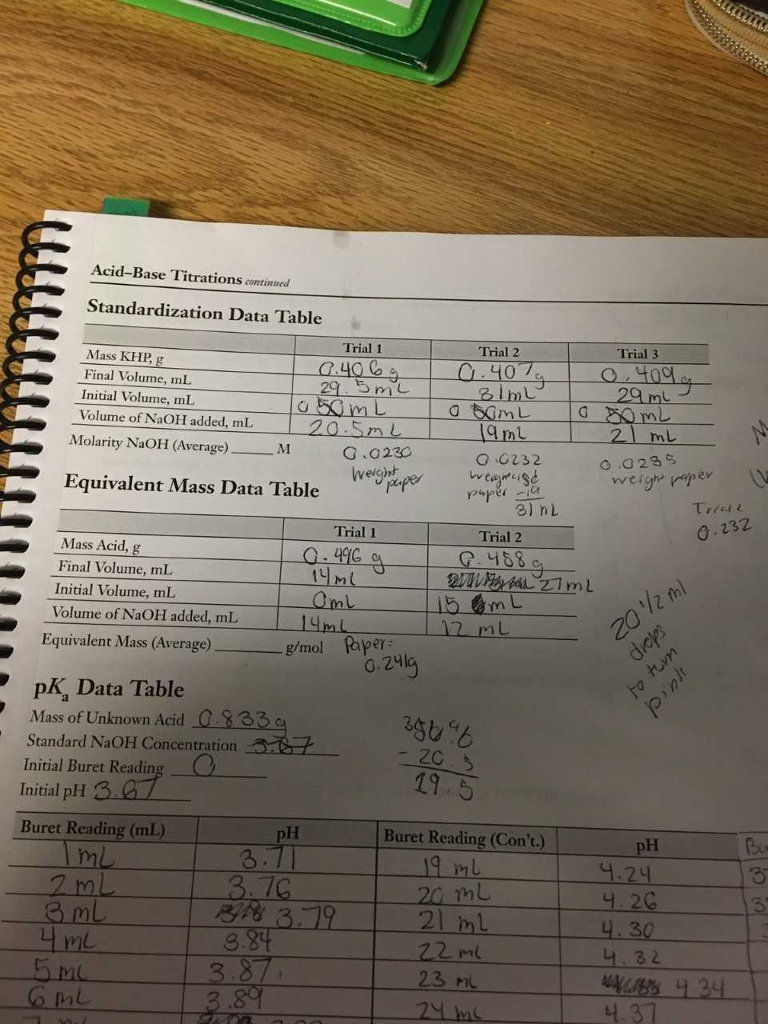 Acid–Base Titrations continued
Standardization Data Table
Trial 1 Trial 2 Trial 3
Mass KHP, g 0.406g 0.407g 0.409g
Final Volume, mL 29.5mL 31mL 29mL
Initial Volume, mL 0 50mL 0 50mL 0 50mL
Volume of NaOH added, mL 20.5mL 19mL 21 mL
Molarity NaOH (Average) M 0.0230 0.0232 0.0235
weight paper paper weight paper
31 mL
Trial
0.232
Equivalent Mass Data Table
Trial 1 Trial 2
Mass Acid, g 0.496 g 0.458g
Final Volume, mL 14mL 27mL
Initial Volume, mL 0mL 15 mL
Volume of NaOH added, mL 14mL 12 mL
Equivalent Mass (Average) g/mol Paper:
0.241g
20 1/2 ml
drops
to turn
pink
pKa Data Table
Mass of Unknown Acid 0.833g
Standard NaOH Concentration 3.67
Initial Buret Reading 0
Initial pH 3.67
- 20.5
19.5
Buret Reading (mL) pH Buret Reading (Con't.) pH Bu
1mL 3.71 19 mL 4.24
2mL 3.76 20 mL 4.26
3mL 3.79 21 mL 4.30
4mL 3.84 22 mL 4.32
5mL 3.87 23 mL 4.34
6mL 3.89 24 mL 4.37